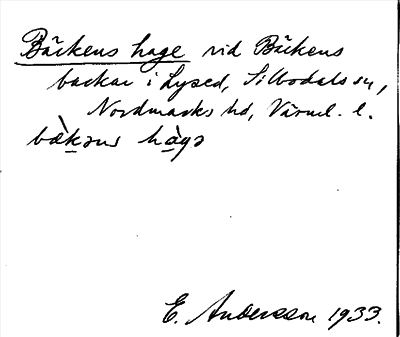 Bäckens hage vid Bäckens
backar i Lysed, Silbodals sn,
Nordmarks hd, Värml. l.
bæ̀kəns hàgə
E. Andersson 1933.